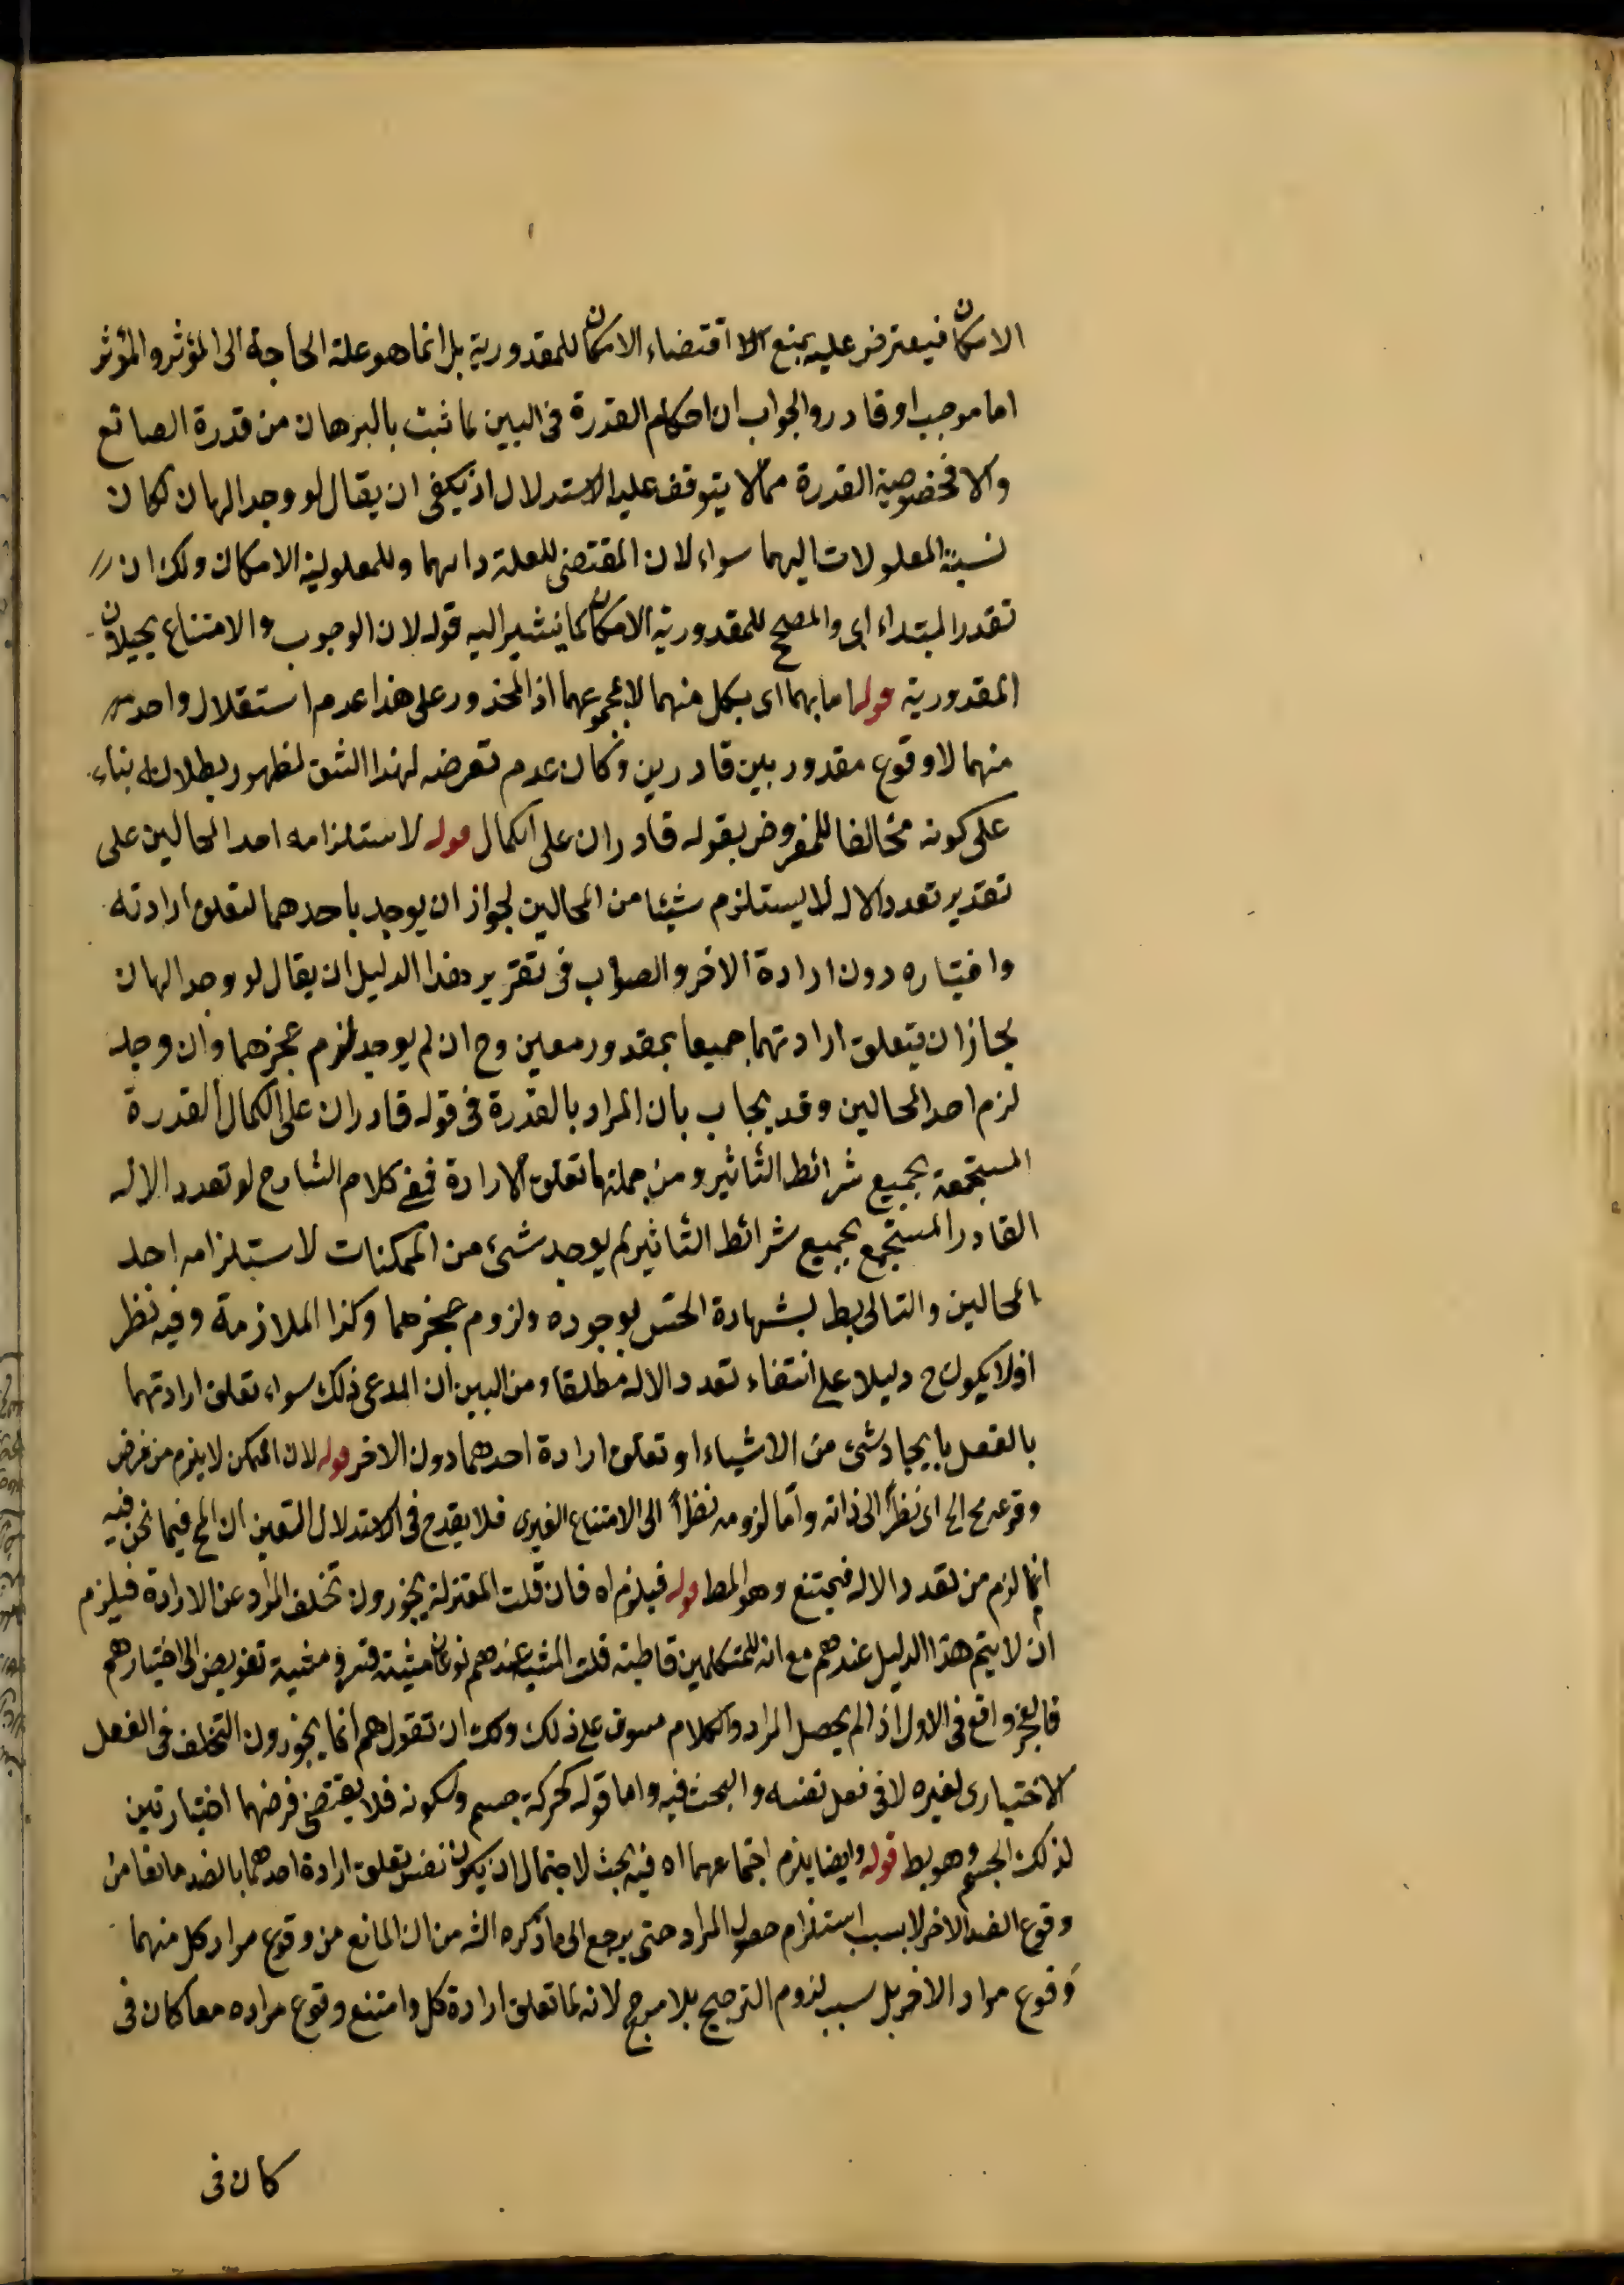 الامكان فيعترض عليه بمنع الا اقتضاء الامكان للمقدورية بل انما هو علة الحاجة الى المؤثر والمؤثر
اما موجب او قادر والجواب ان احكام القدرة فى البين لما ثبت بالبرهان من قدرة الصانع
والا فخصوصية القدرة مما لا يتوقف عليه الاستدلال اذ يكفى ان يقال لو وجد الهان لكان
نسبة المعلولات اليهما سواء لان المقتضى للعلة ذاتهما وللمعلولية الامكان ولك ان
تقدر المبتداء اى والمصحح للمقدورية الامكان كما يشير اليه قوله لان الوجوب والامتناع يحيلان
المقدورية قوله اما بهما اى بكل منهما لا بمجموعهما اذ المحذور على هذا عدم استقلال واحد
منهما لا وقوع مقدور بين قادرين وكان عدم تعرضه لهذا الشق لظهور بطلانه بناء
على كونه مخالفا للمفروض بقوله قادران على الكمال قوله لاستلزامه احد المحالين على
تقدير تعدد الاله لا يستلزم شيئا من المحالين لجواز ان يوجد باحدهما لتعلق ارادته
واختياره دون ارادة الاخر والصواب فى تقرير هذا الدليل ان يقال لو وجد الهان
لجاز ان يتعلق ارادتهما جميعا بمقدور معين وح ان لم يوجد لزم عجزهما وان وجد
لزم احد المحالين وقد يجاب بان المراد بالقدرة فى قوله قادران على الكمال القدرة
المستجمعة بجميع شرائط التأثير ومن جملتها تعلق الارادة فمعنى كلام الشارح لو تعدد الاله
القادر المستجمع بجميع شرائط التأثير لم يوجد شىء من الممكنات لاستلزامه احد
المحالين والتالى بط بشهادة الحس بوجوده ولزوم عجزهما وكذا الملازمة وفيه نظر
اذ لا يكون ح دليلا على انتفاء تعدد الاله مطلقا ومن البين ان المدعى ذلك سواء تعلق ارادتهما
بالفعل بايجاد شىء من الاشياء او تعلق ارادة احدهما دون الاخر قوله لان الممكن لا يلزم من فرض
وقوعه مح الخ اى نظرا الى ذاته واما لزومه نظرا الى الامتناع الغيرى فلا يقدح فى الاستدلال لتعين ان المح فيما نحن فيه
انما لزم من تعدد الاله فيمتنع وهو المط قوله فيلزم اه فان قلت المعتزلة يجوزون تخلف المراد عن الارادة فيلزم
ان لا يتم هذا الدليل عندهم مع انه للمتكلمين قاطبة قلت المشية عندهم نوعان مشية قسر ومشية تفويض الى اختيارهم
فالعجز واقع فى الاول اذا لم يحصل المراد والكلام مسوق على ذلك ولك ان تقول هم انما يجوزون التخلف فى الفعل
الاختيارى لغيره لا فى فعل نفسه والبحث فيه واما قوله كحركة جسم وسكونه فلا يقتضى فرضهما اختيارتين
لذلك الجسم وهو بط قوله وايضا يلزم اجتماعهما اه فيه بحث لاحتمال ان يكون نفس تعلق ارادة احدهما بالضد مانعا من
وقوع الضد الاخر لا بسبب استلزام حصول المراد حتى يرجع الى ما ذكره الش من ان المانع من وقوع مراد كل منهما
وقوع مراد الاخر بل بسبب لزوم الترجيح بلا مرجح لانه لما تعلق ارادة كل وامتنع وقوع مراده معا كان فى
كان فى